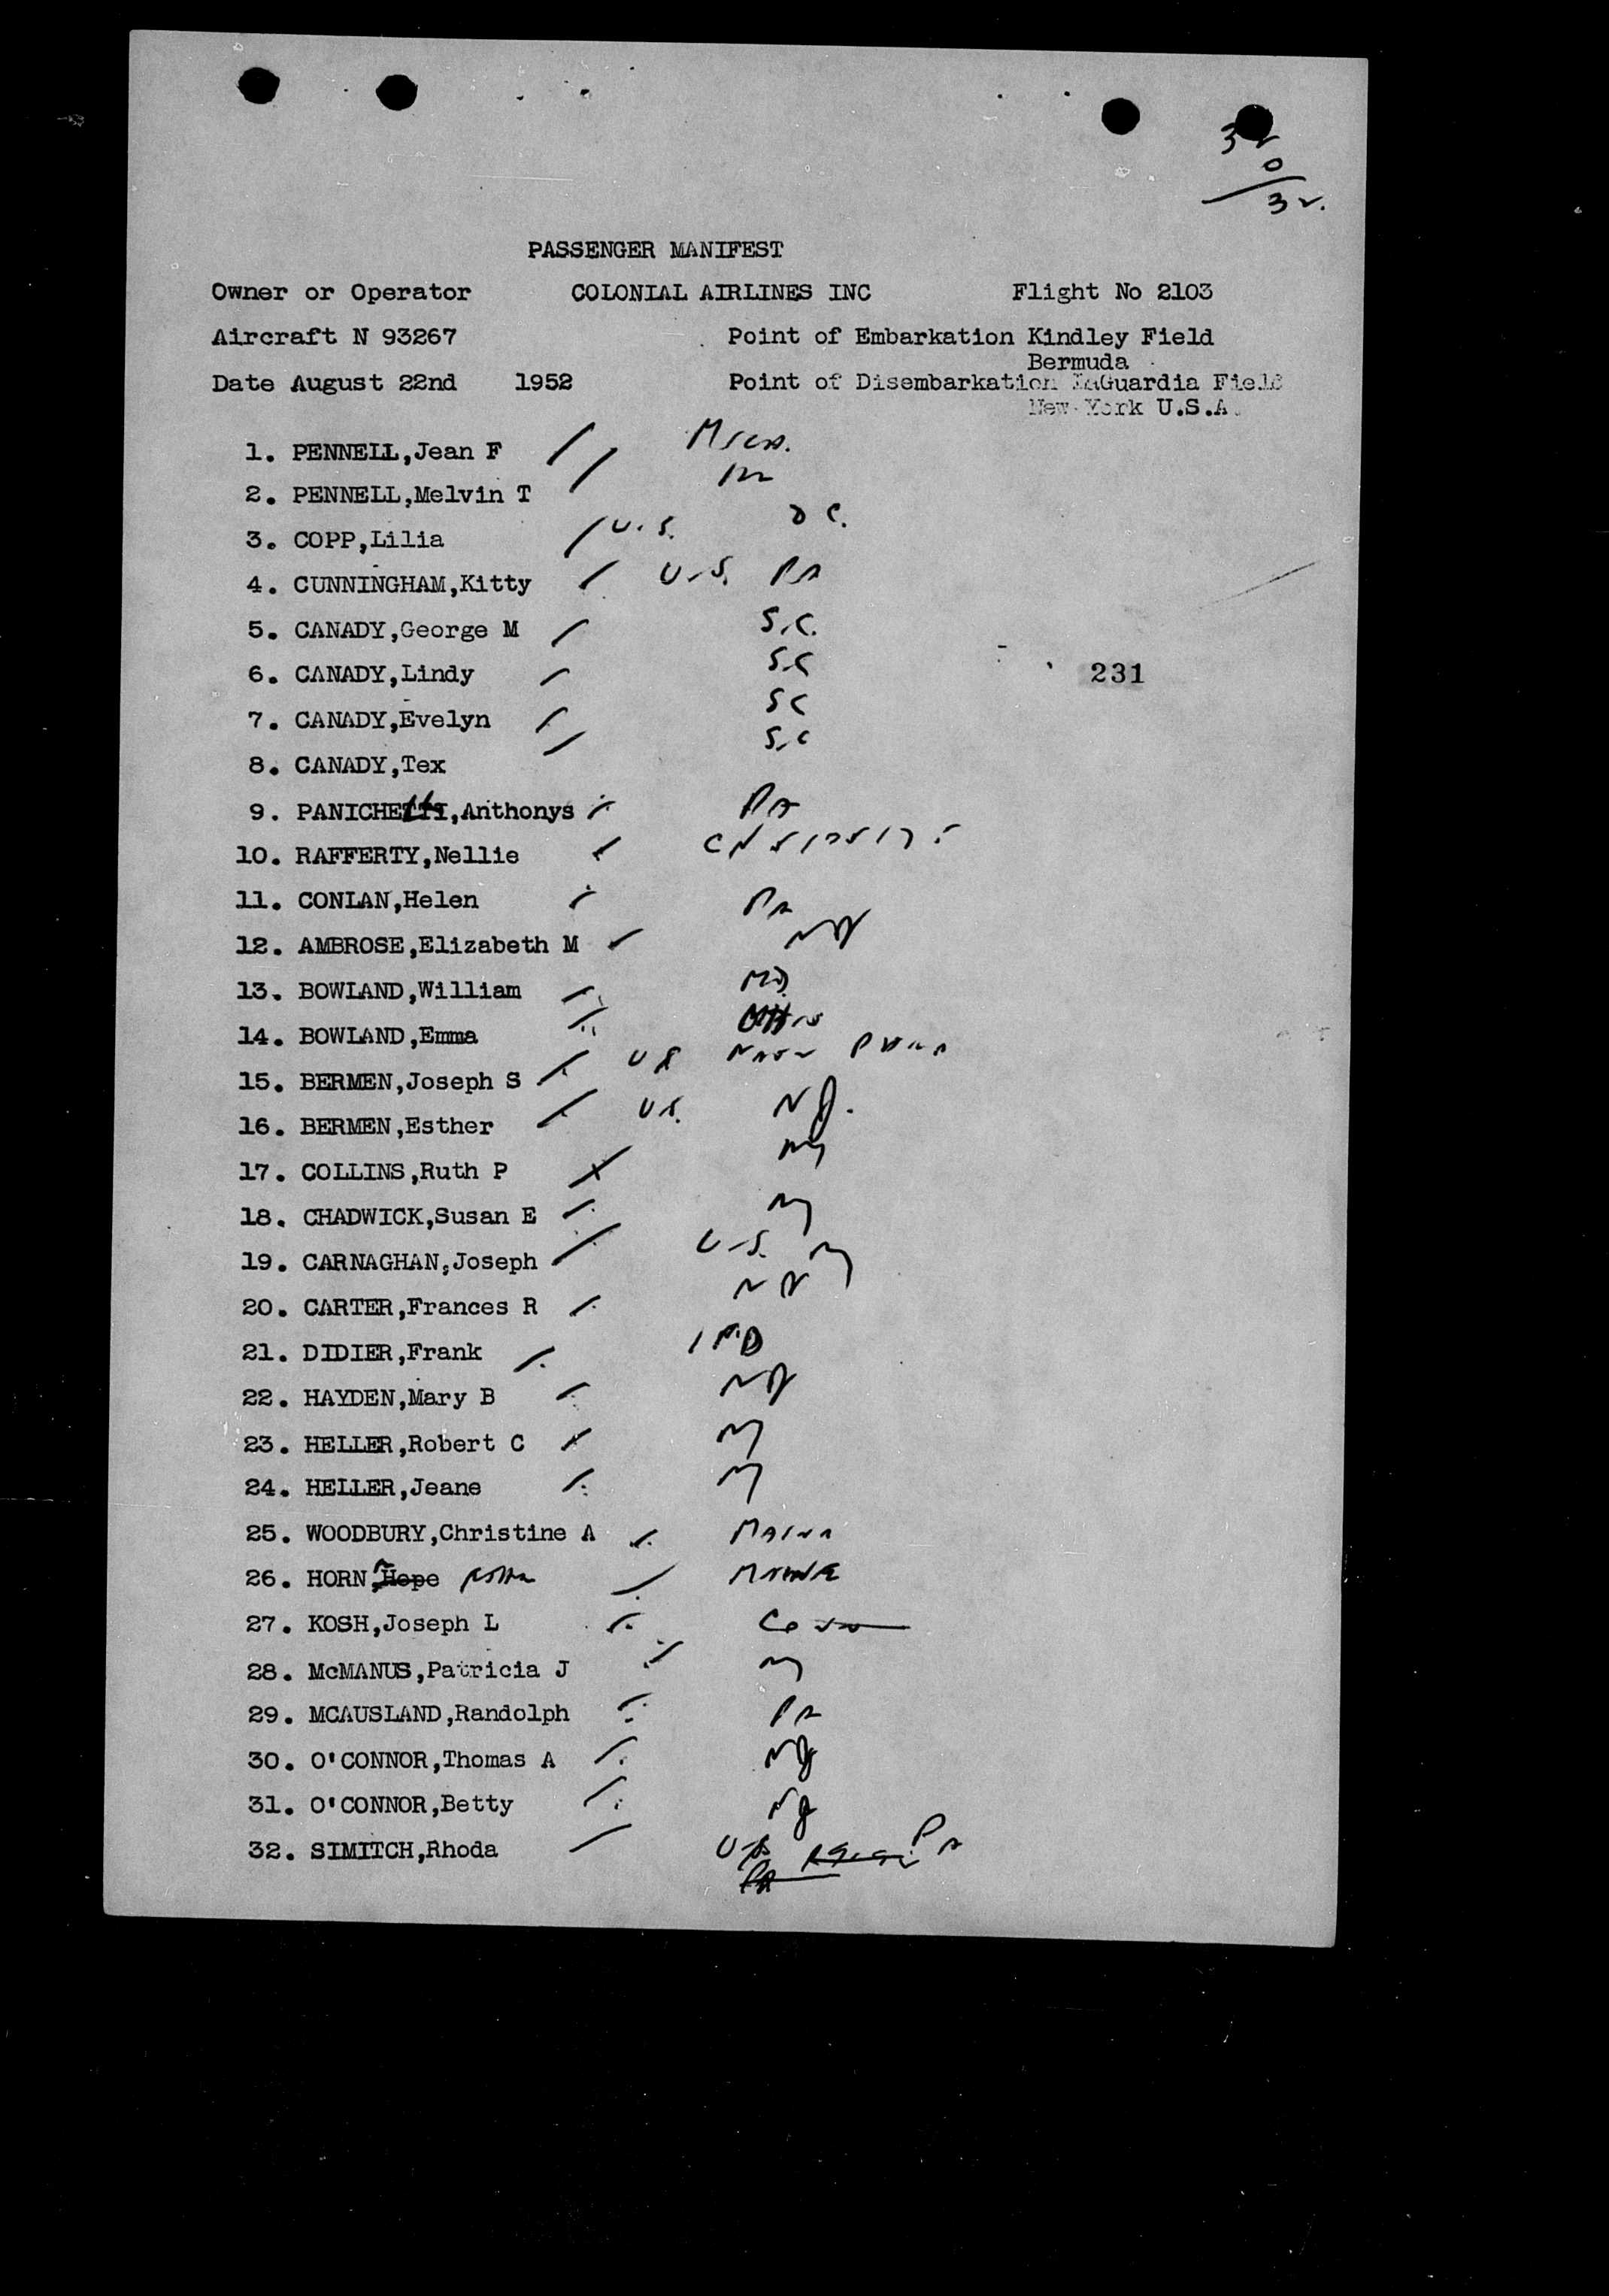 32
0
32.
PASSENGER MANIFEST
Owner or Operator COLONIAL AIRLINES INC Flight No 2103
Aircraft N 93267 Point of Embarkation Kindley Field
Bermuda
Date August 22nd 1952 Point of Disembarkation LaGuardia Field
New York U.S.A.
1. PENNELL,Jean F
2. PENNELL,Melvin T
3. COPP,Lilia U.S. D C.
4. CUNNINGHAM,Kitty U.S. PA
5. CANADY,George M S.C.
6. CANADY,Lindy S.C
7. CANADY,Evelyn S C
8. CANADY,Tex S.C
9. PANICHE,Anthonys PA
10. RAFFERTY,Nellie
11. CONLAN,Helen PA
12. AMBROSE,Elizabeth M NY
13. BOWLAND,William MD.
14. BOWLAND,Emma
15. BERMEN,Joseph S US
16. BERMEN,Esther U.S. NJ.
17. COLLINS,Ruth P NY
18. CHADWICK,Susan E NY
19. CARNAGHAN,Joseph U.S. NY
20. CARTER,Frances R NY
21. DIDIER,Frank
22. HAYDEN,Mary B NY
23. HELLER,Robert C NY
24. HELLER,Jeane NY
25. WOODBURY,Christine A MAINE
26. HORN,Hope MAINE
27. KOSH,Joseph L
28. McMANUS,Patricia J NY
29. MCAUSLAND,Randolph PA
30. O'CONNOR,Thomas A NJ
31. O'CONNOR,Betty NJ
32. SIMITCH,Rhoda US PA
PA
231